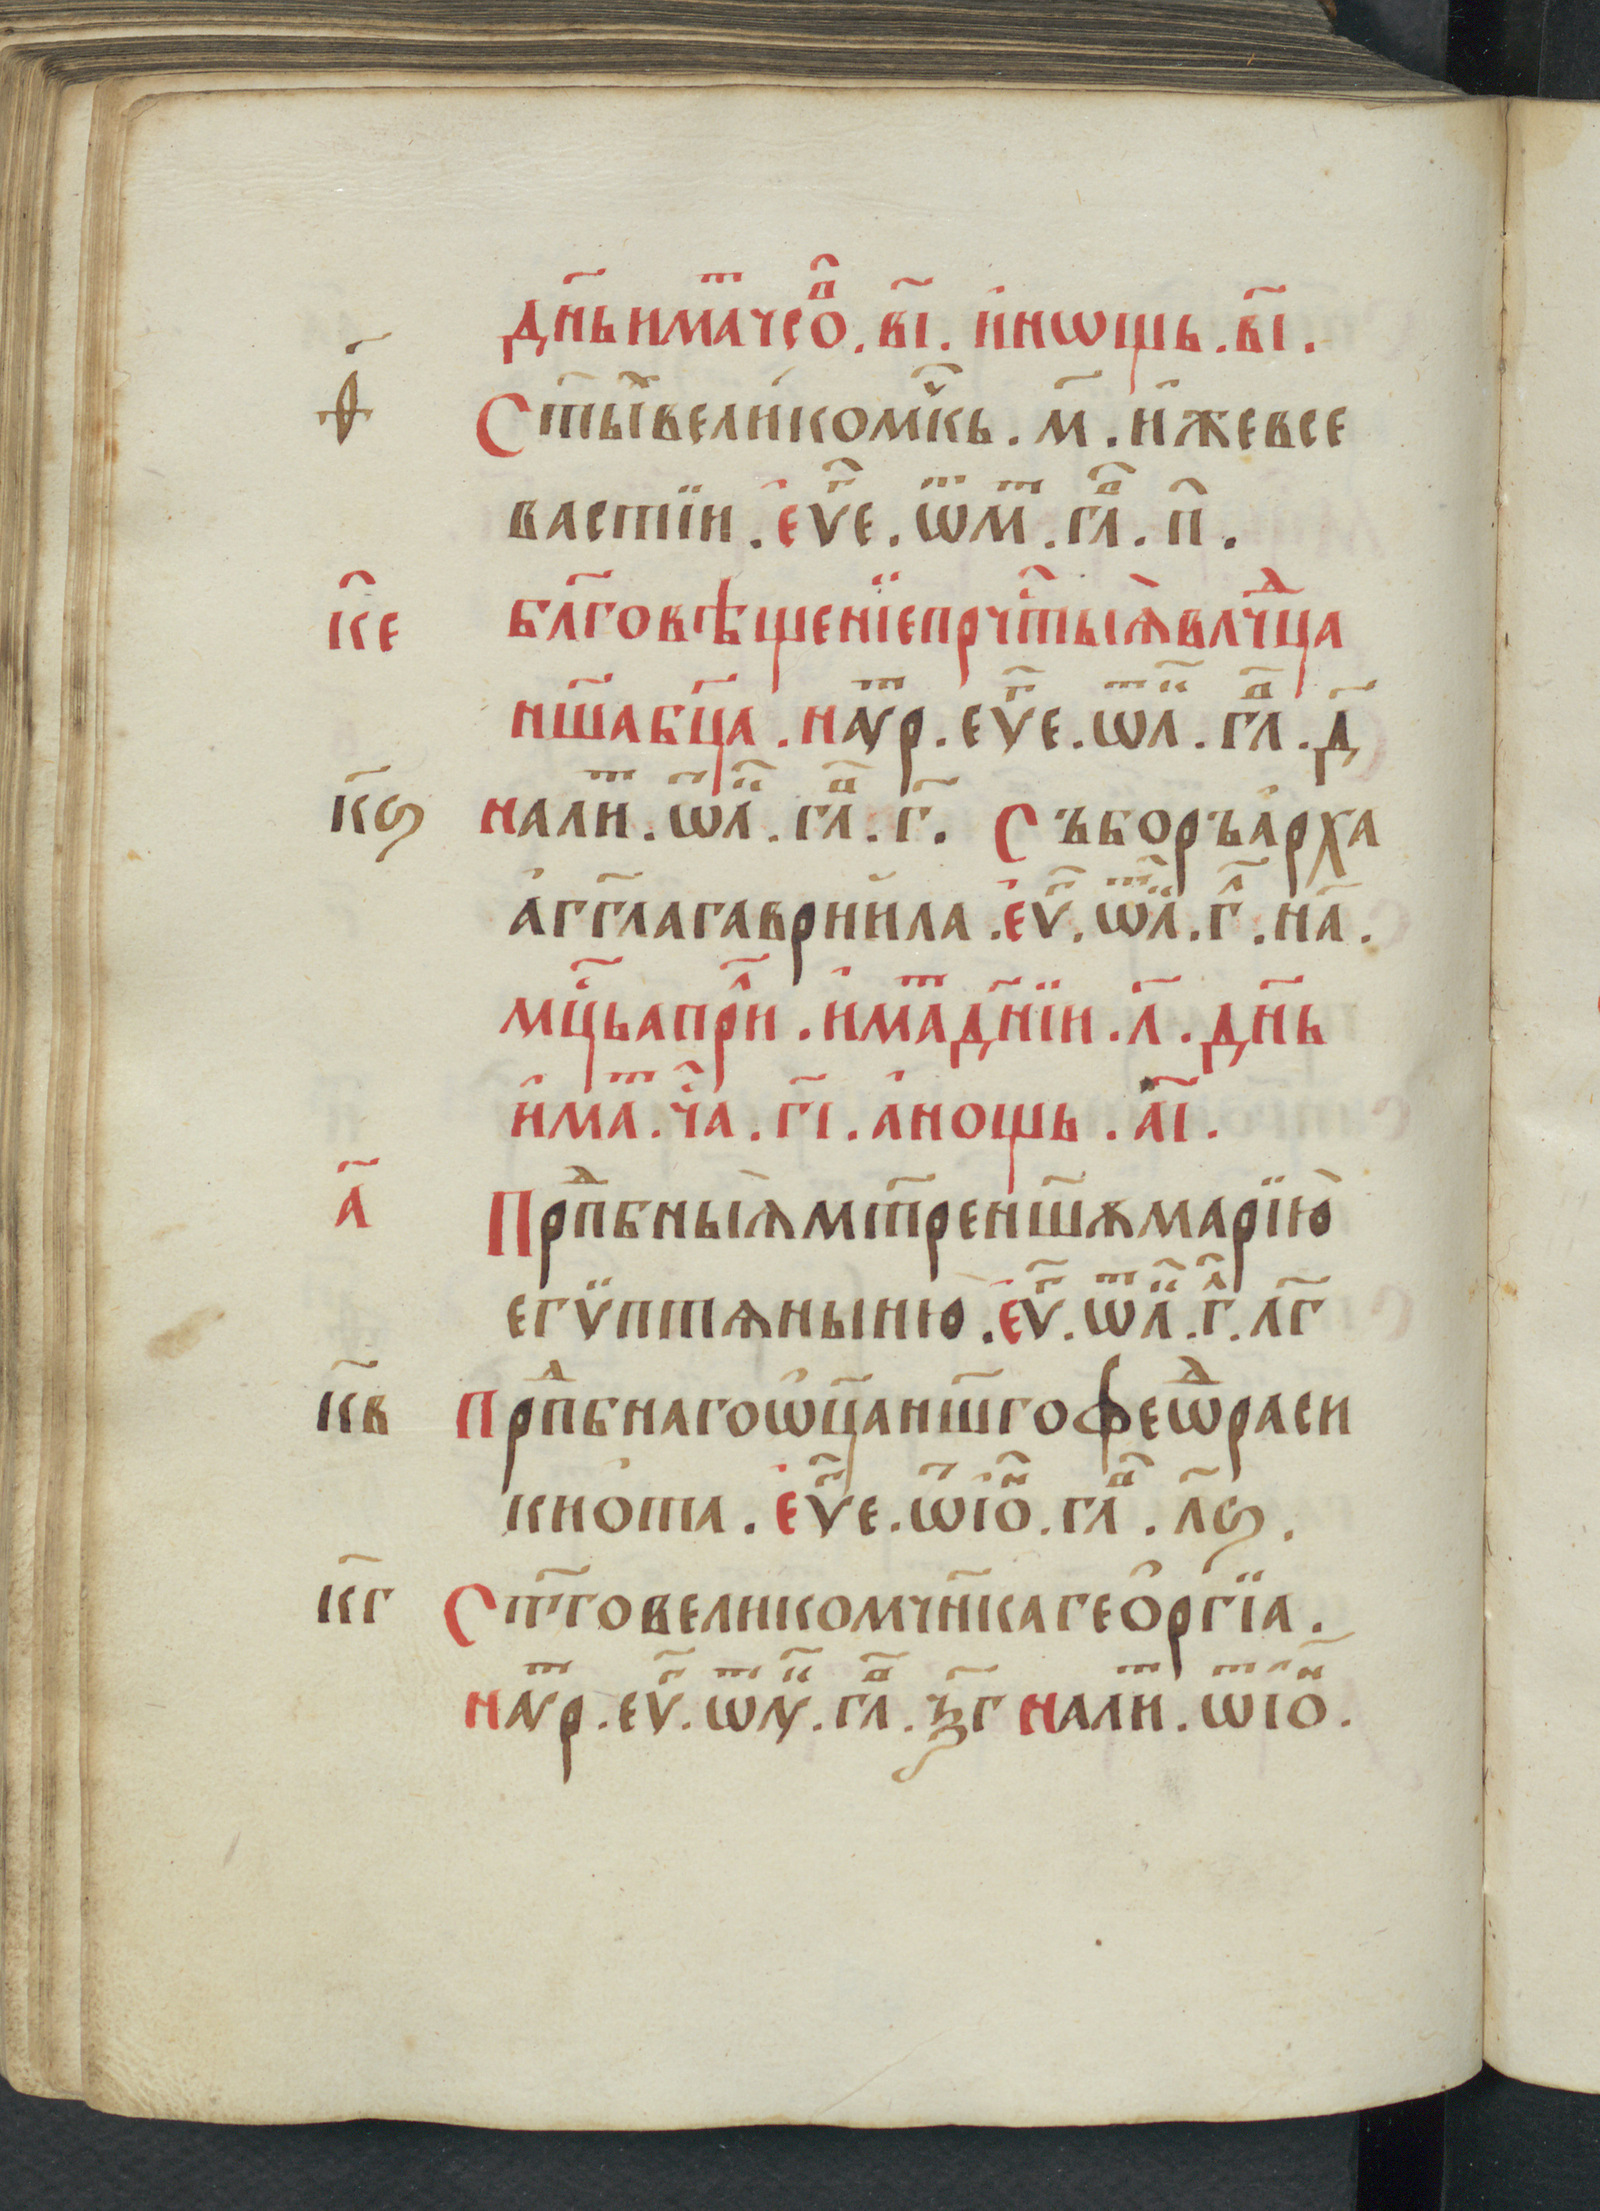 дн҃ь има́т чсо́в . в҃і . и҆ нѡщь . в҃і .
ѳ҃ Ст҃ы́х великомч҃къ . м҃ . и҆же в се
вастїи . е҆ѵⷢ҇е . ѿ мⷮ . глⷡ҇ . п҃ .
к҃е Бл҃говѣщенїе прчⷭ҇тыѧ влⷣчца
нш҃а бц҃а . на ѹⷮр . еѵⷢ҇е . ѿ лⷦ . глⷡ҇ . д҃
к҃ѕ на лиⷮ . ѿ лⷦ . глⷡ҇ . г҃ . Съборъ а҆рха
а҆гг҃ла гавриила . е҆ѵⷢ҇ . ѿ лⷦ . гⷧ҇ . на҃ .
мцⷭ҇ь априⷧ . и҆маⷮ дн҃їи . л҃ . дн҃ь
и҆маⷮ . чⷭ҇а . г҃і . а҆ нощь . а҃і .
а҃ Прпⷣбныѧ мт҃ре нш҃ѧ марїю
егѵ̈птѧныню . е҆ѵⷢ҇ . ѿ лⷦ . гⷧ҇ . л҃г
к҃в Прпⷣбнаго ѿц҃а нш҃го феѡⷣра си
кио́та . е҆ѵⷢ҇е . ѿ і҆ѡⷩ . глⷡ҇ . л҃ѕ .
к҃г Ст҃го великомчн҃ка гео҆ргїа .
на ѹⷮр . еѵⷢ҇ . ѿ лѹⷦ . глⷡ҇ . ѯ҃г на лиⷮ . ѿ іѡⷩ .